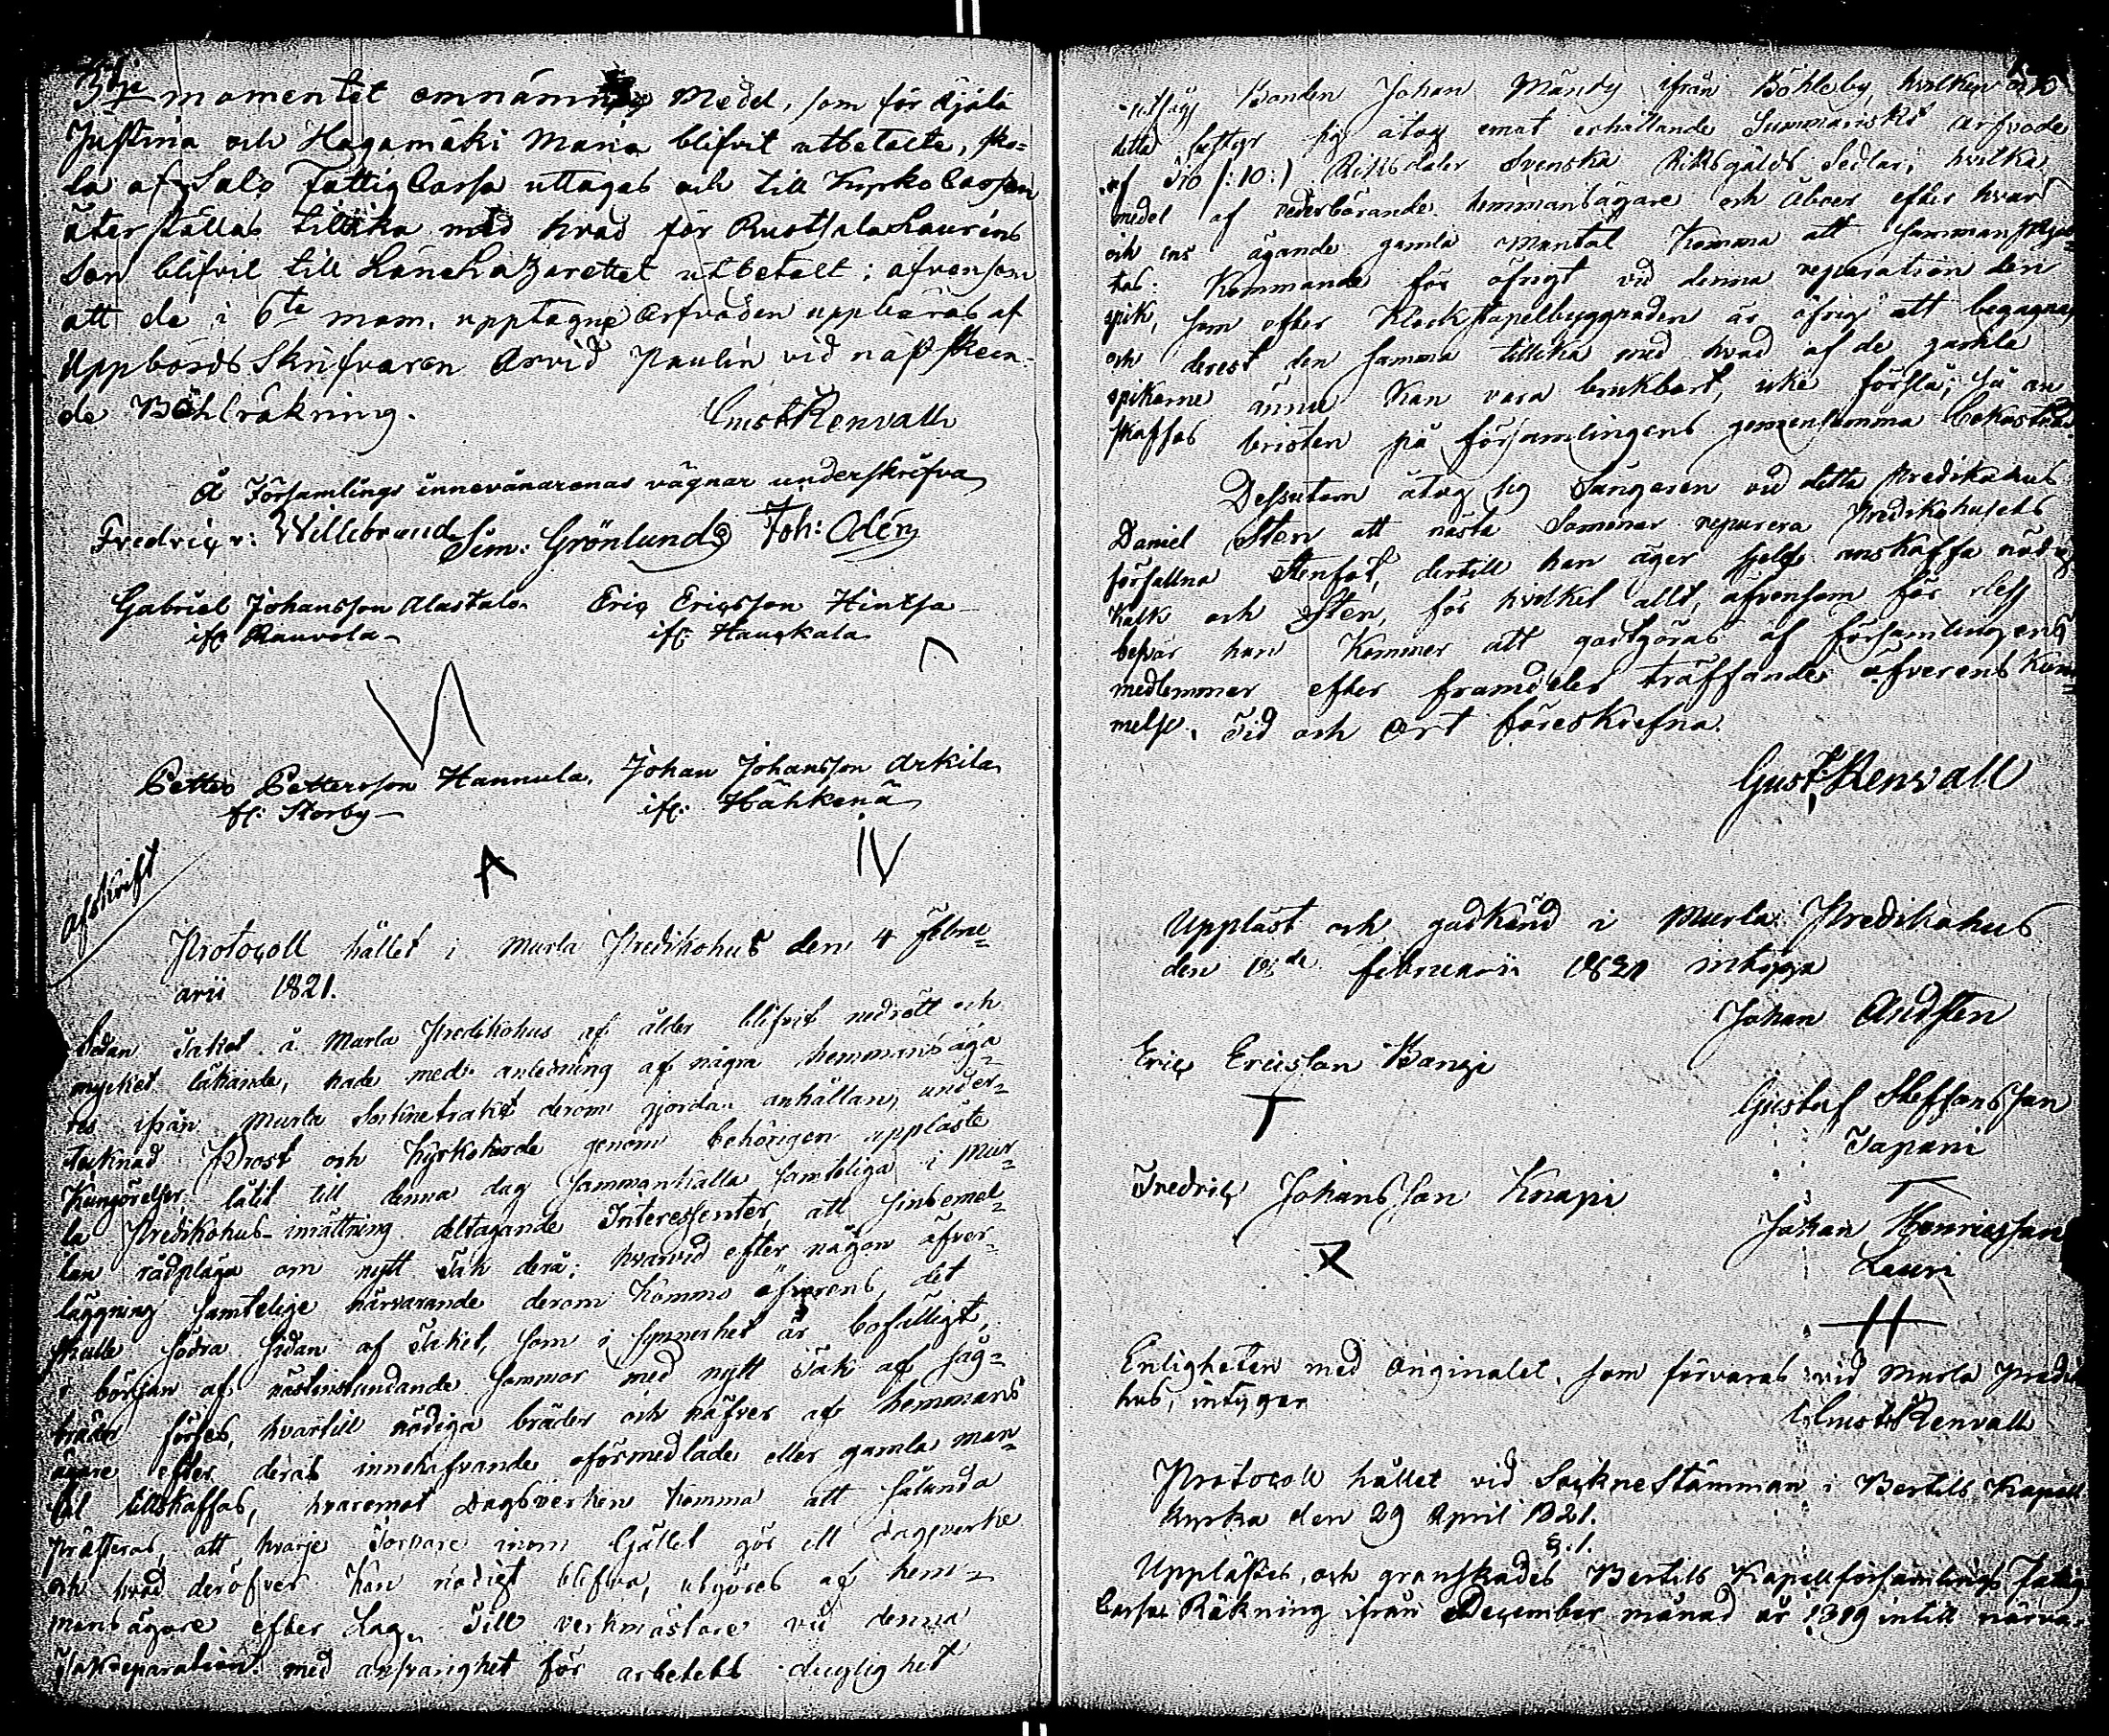 3dje momentet omnämnde Medel, som för Ajala
Justina och Hagamäki Maria blifvit utbetalte, sko-
la af Salo Fattig Cassa uttagas och till Kyrko Cassan
återställas tillika med hvad för Ruotsala Laurins
Son blifvit till Läne Lazarettet utbetalt; äfvensom
att de i 6te mom. upptagne Arfvoden uppbäras af
Uppbörds Skrifvaren Arvid Paulin vid näst skeen-
de Bohlräkning. Gust Renvall
Å Församlings innevånarenas vägnar underskrifva
Fredric v: Willebrand Sim: Grönlund Joh: Odén
Gabriel Johansson Alastalo Eric Ericsson Hintsa
ifr: Rauvola ifr: Hauckala
Petter Pettersson Hannula Johan Johansson Arkila
fr: Storby ifr: Hähkenä
A IV
Afskrift
Protocoll hållet i Murla Predikohus den 4 Febru-
arii 1821.
Sedan Taket å Murla Predikohus af ålder blifvit nedrött och
mycket läkande, hade med anledning af några hemmansäga-
res ifrån Murla Socknetrakt derom gjorda anhållan, under-
tecknad Prost och Kyrkoherde genom behörigen uppläste
Kungörelser, låtit till denna dag sammankalla samteliga i Mur-
la Predikohus-inrättning deltagande Interessenter att sinsemel-
lan rådpläga om nytt Tak derå; hvarvid efter någon öfver-
läggning samtelige närvarande derom kommo öfverens, det
skulle södra sidan af Taket, som i synnerhet är bofälligt,
i början af nästinstundande sommar med nytt Tak af såg-
bräder förses, hvartill nödiga bräder och näfver af hemmans
ägare efter deras innehafvande oförmedlade eller gamla man-
tal tillskaffas, hvaremot Dagsverken komma att sålunda
præsteras, att hvarje Torpare inom Gället gör ett dagsverke
och hvad deröfver kan nödigt blifva, utgöres af hem-
mansägare efter Lag. Till verkmästare vid denna
Takreparation med ansvarighet för arbetets duglighet
Bonden Johan Mändy ifrån Böhleby, hvilken ock
detta sig åtog emot erhållande Summariskt arfvode
af Tio /:10:/ Riksdaler Svenska Riksgälds Sedlar; hvilka
medel af vederbörande hemmansägare och Åboer efter hvars
och ens ägande gamla Mantal komma att sammanskjut-
tas. Kommande för öfrigt vid denna reparation den
spik, som efter Klockstapelbyggnaden är öfrig att begagnas
och derest den samma tillika med hvad af de gamla
spikarne ännu kan vara brukbart, icke förslå; så an-
skaffas bristen på församlingens gemensamma bekostnad.
Dessutom åtog sig Sångaren vid detta Predikohus
Daniel Sten att nästa Sommar reparera Predikohusets
förfallna Stenfot, dertill han äger sjelf anskaffa nödig
kalk och Sten, för hvilket allt, äfvensom för dess
besvär han kommer att godtgöras af församlingens
medlemmar efter framdeles träffande öfverenskom-
melse. Tid och Ort föreskrefna.
Gust: Renvall
Uppläst och godkänd i Murla Predikohus
den 18de februarii 1821 intyga
Johan Andsten
Eric Ericsson Banzi
T
Gustaf Steffansson
Tapani
Fredric Johansson Knapi
Johan Henricsson
Lauri
H
Enligheten med Originalet, som förvaras vid Murla Prediko-
hus, intygar
Gust Renvall
Protocoll hållet vid SockneStämman i Bertils Kapell
Kyrka den 29 April 1821.
§.1.
Upplästes och granskades Bertils Kapellförsamlings Fattig
Cassæ Räkning ifrån December månad år 1819 intill närva-